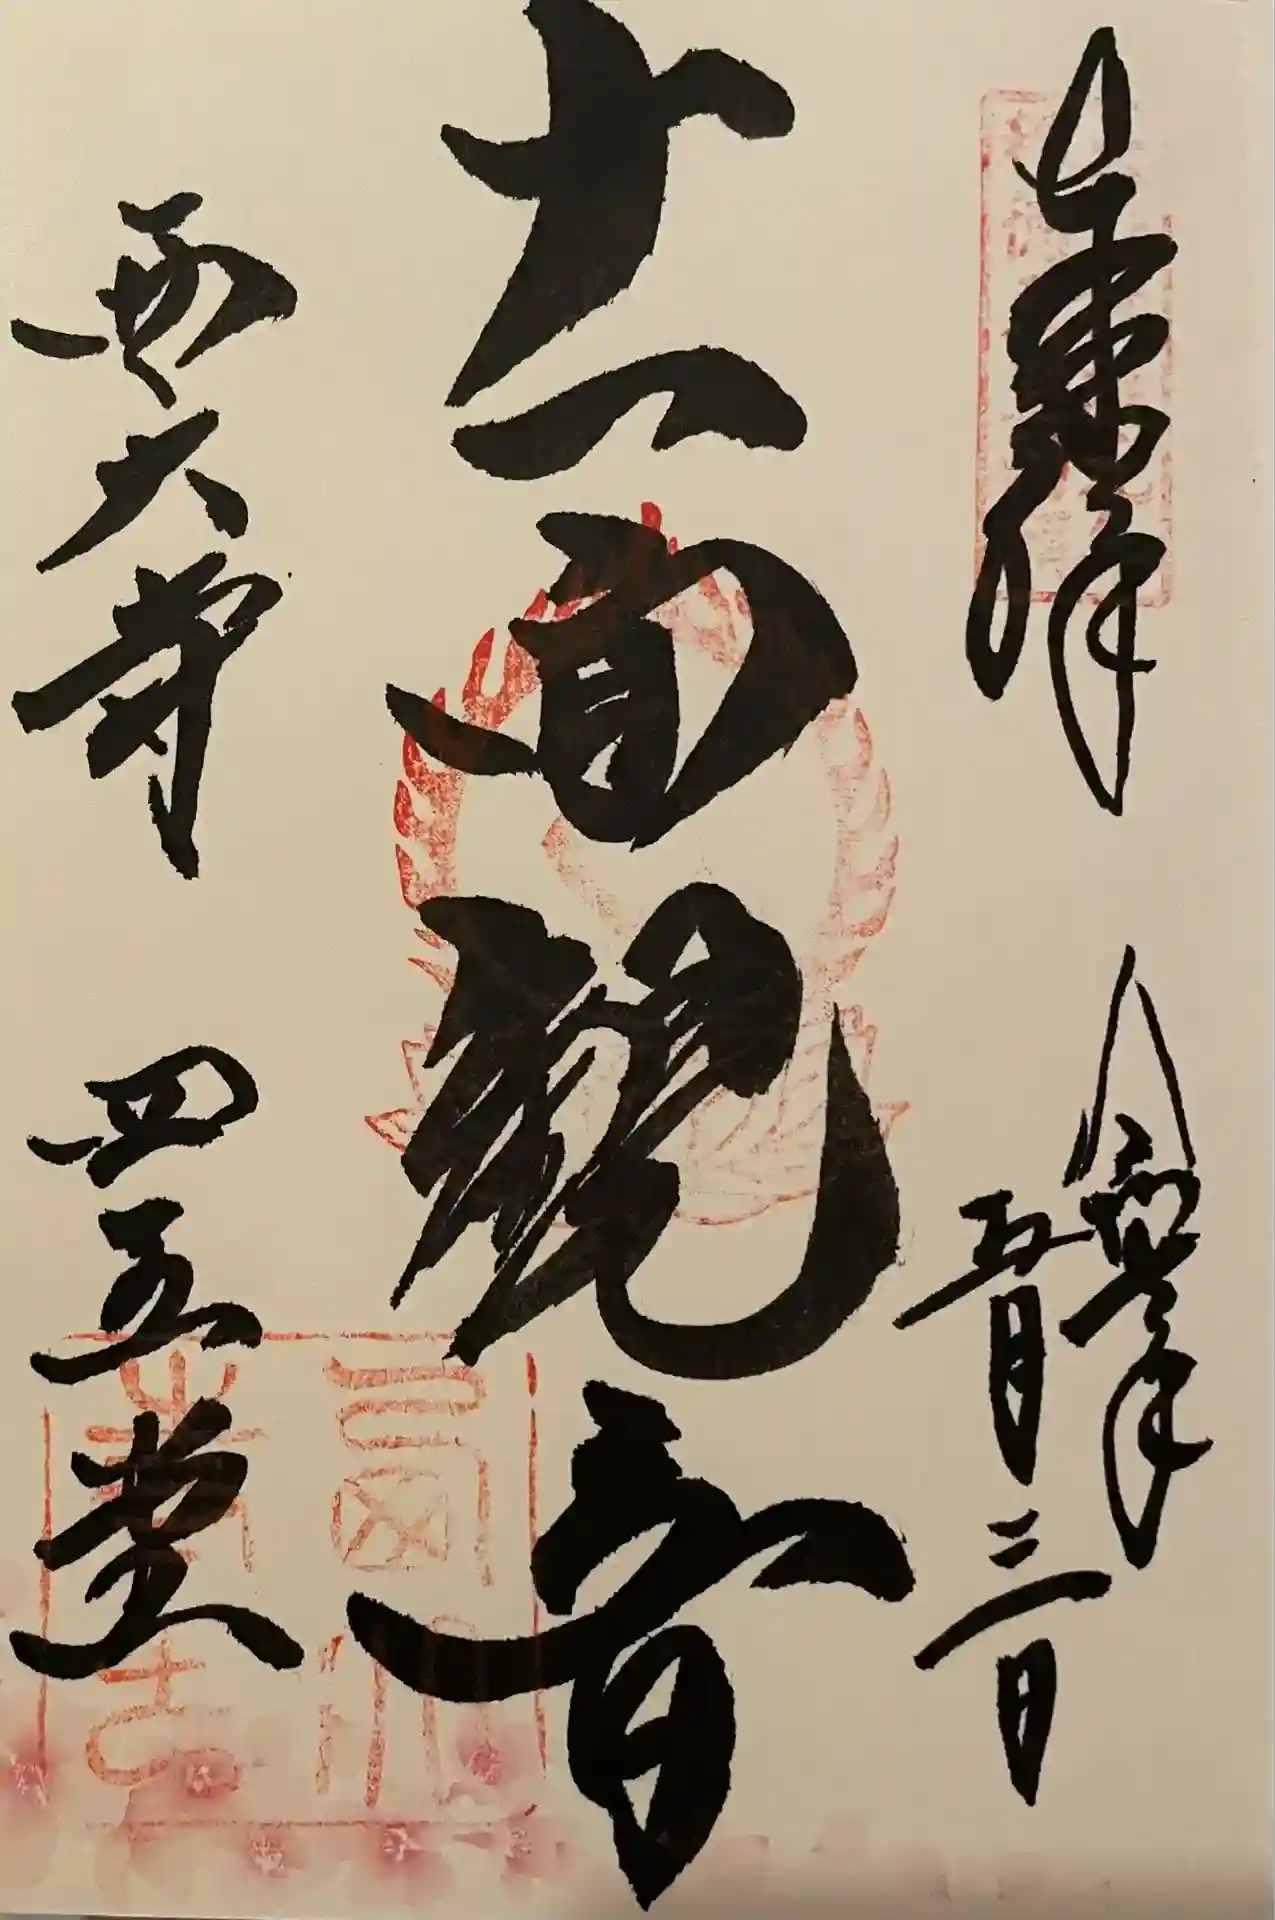 奉拝 令和
五月三日
十一面觀音
西大寺 四王堂